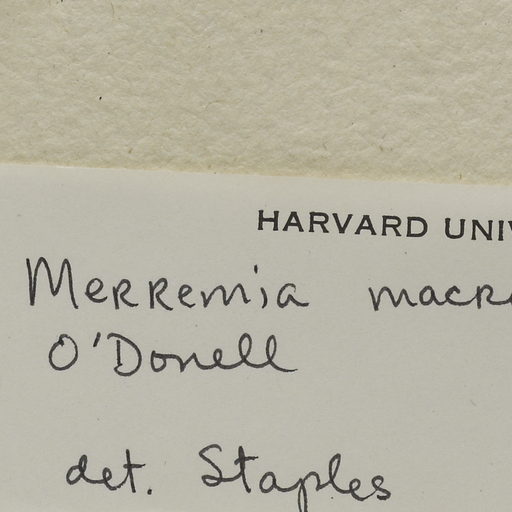 HARVARD UNIV
Merremia macro
O'Donell
det. Staples